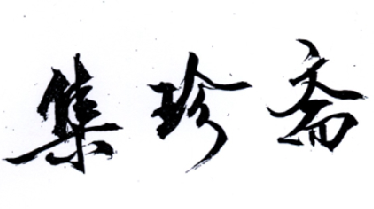 集珍斋